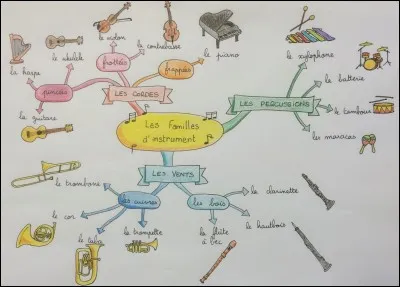 Les Familles
d'instrument
LES CORDES
pincées
la harpe
le ukulele
la guitare
frottés
le violon
la contrebasse
frappées
le piano
LES PERCUSSIONS
le xylophone
la batterie
le tambour
les maracas
LES VENTS
les cuivres
le trombone
le cor
le tuba
la trompette
les bois
la clarinette
le hautbois
la flûte
à bec